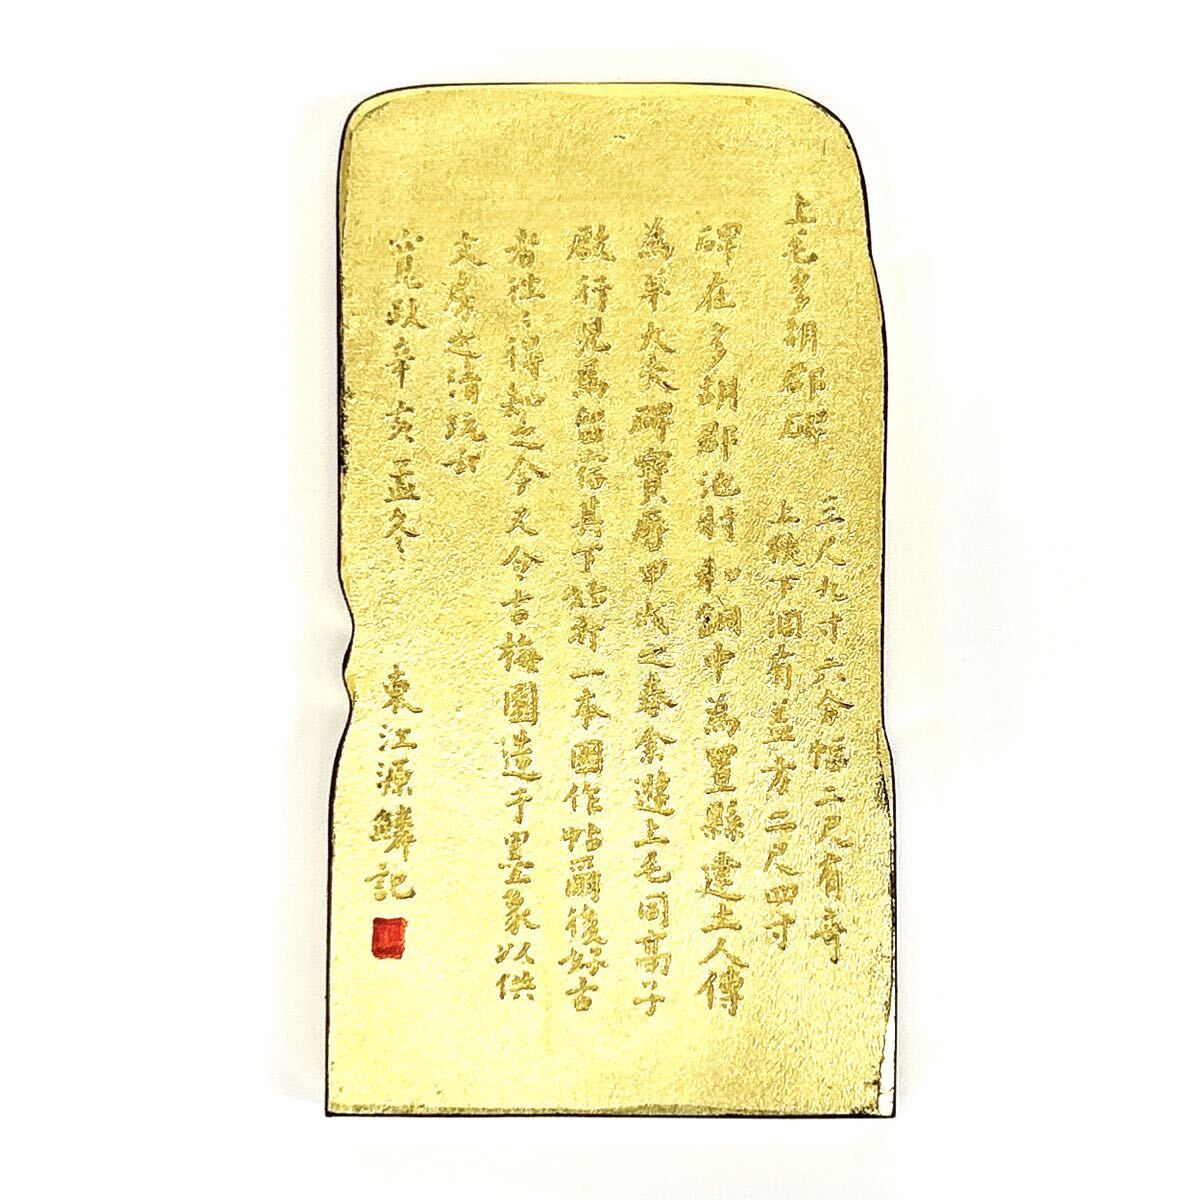 上毛多胡郡碑
三尺九寸六分幅二尺有奇
上狭下濶有蓋方二尺四寸
碑在多胡郡池村和銅中為置縣建土人傳
為羊大夫碑寶暦甲戌之春余遊上毛同高子
啟行見焉留宿其下拓打一本國作帖爾後好古
者往〻得知之今又令古梅園造于墨象以供
文房之清玩云
寛政辛亥孟冬
東江源鱗記